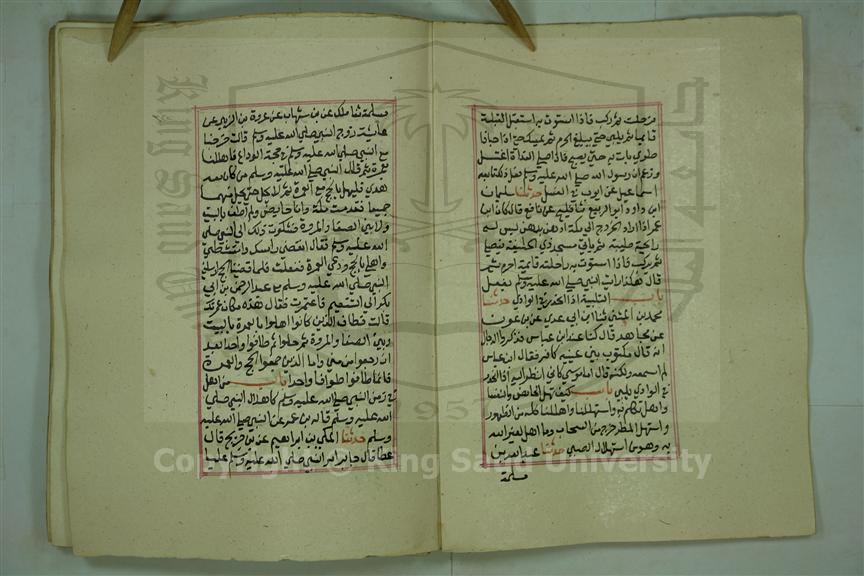 فرحلت ثم ركب فاذا استوت به استقبل القبلة
قايما ثم يلبي حتي يبلغ الحرم ثم يمسك حتي اذا جا ذا
طوي بات به حتي يصبح فاذا صلي الغداة اغتسل
وزعم ان رسول الله صلي الله عليه وسلم فعل ذلك تابعه
اسماعيل عن ايوب في الغسل حدثنا سليمان
ابن داود ابو الربيع ثنا فليح عن نافع قال كان ابن
عمر اذا اراد الخروج الي مكة ادهن بدهن ليس له
رايحة طيبة ثم ياتي مسجد ذي الحليفة فيصلي
ثم يركب فاذا استوت به راحلته قايمة احرم ثم
قال هكذا رايت النبي صلي الله عليه وسلم يفعل
باب التلبية اذا انحدر في الوادي حدثنا
محمد بن المثني ثنا ابن ابي عدي عن بن عون
عن مجاهد قال كنا عند ابن عباس فذكروا الدجال
انه قال مكتوب بين عينيه كافر فقال ابن عباس
لم اسمعه ولكنه قال اما موسي كاني انظر اليه اذا انحدر
في الوادي يلبي باب كيف تهل الحائض والنفسا
واهل تكلم به واستهللنا واهللنا كله من الظهور
واستهل المطر خرج من السحاب وما اهل لغير الله
به وهو من استهلال الصبي حدثنا عبد الله بن
مسلمة
مسلمة ثنا ملك عن بن شهاب عن عروة بن الزبير عن
عايشة زوج النبي صلي الله عليه وسلم قالت خرجنا
مع النبي صلي الله عليه وسلم في حجة الوداع فاهللنا
بعمرة ثم قال النبي صلي الله عليه وسلم من كان معه
هدي فليهل بالحج مع العمرة ثم لا يحل حتي يحل منهما
جميعا فقدمت مكة وانا حايض ولم اطف بالبيت
ولا بين الصفا والمروة فشكوت ذلك الي النبي صلي
الله عليه وسلم فقال انقضي راسك وامتشطي
واهلي بالحج ودعي العمرة ففعلت فلما قضينا الحج ارسلني
النبي صلي الله عليه وسلم مع عبد الرحمن بن ابي
بكر الي التنعيم فاعتمرت فقال هذه مكان عمرتك
قالت فطاف الذين كانوا اهلوا بالعمرة بالبيت
وبين الصفا والمروة ثم حلوا ثم طافوا واحدا بعد
ان رجعوا من مني واما الذين جمعوا الحج والعمرة
فانما طافوا طوافا واحدا باب من اهل
في زمن النبي صلي الله عليه وسلم كاهلال النبي صلي
الله عليه وسلم قاله بن عمر عن النبي صلي الله عليه
وسلم حدثنا المكي بن ابراهيم عن بن جريج قال
عطا قال جابر امر النبي صلي الله عليه وسلم عليا
Copyright © King Saud University
King Saud
1957